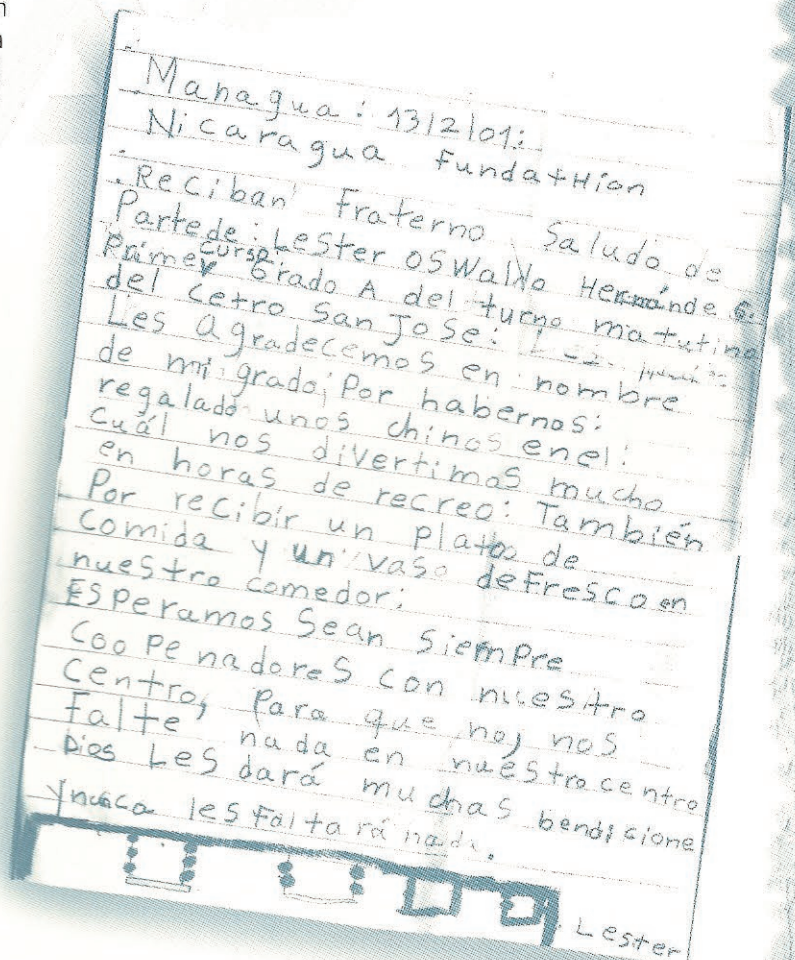 Managua: 13/2/01:
Nicaragua fundatHion
.Reciban fraterno Saludo de
Parte de: LeSter OSWaldo Hernánde G.
curso
Primer Grado A del turno matutino
del cetro San JoSe:
Les agradecemos en nombre
de mi grado; Por habernos:
regalado unos chinos enel:
Cuál nos divertimos mucho
en horas de recreo: También
Por recibir un plato de
Comida y un vaso de Fresco en
nuestro comedor;
ESPeramos Sean Siempre
Coopenadores con nuestro
Centro, Para que no, nos
falte nada en nuestro centro
Dios Les dará muchas bendicione
y nunca les faltará nada.
Lester